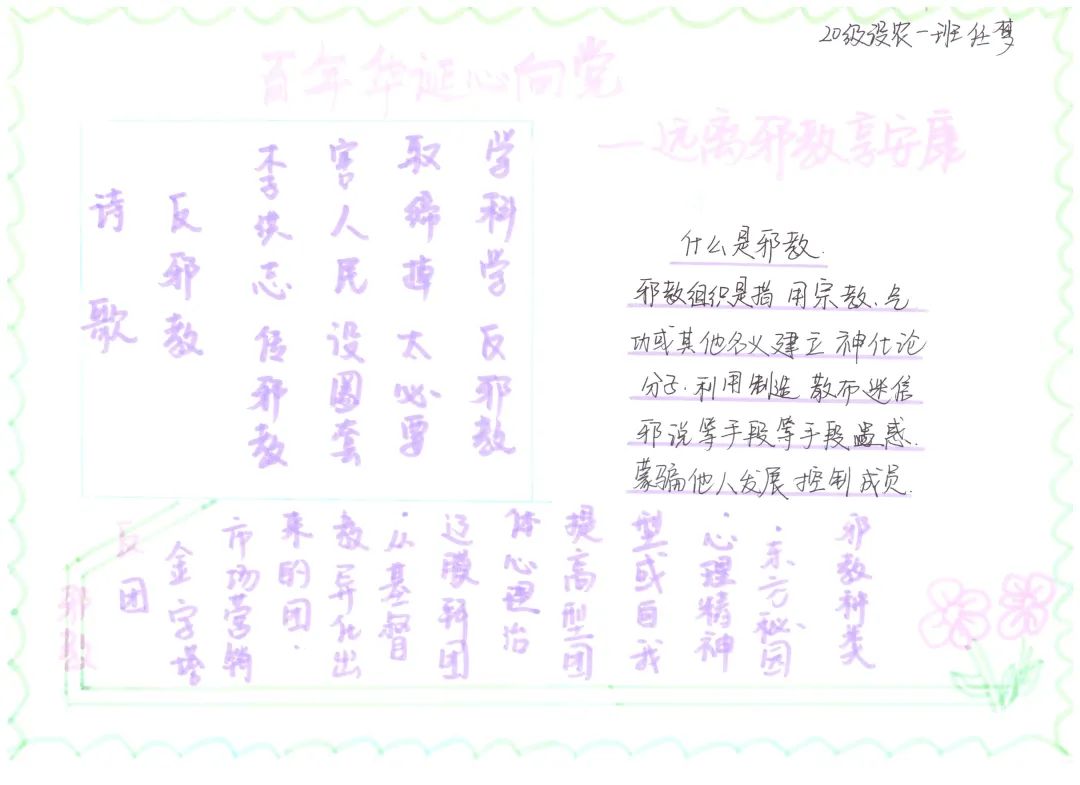 20级设农一班任梦
百年华诞心向党
一远离邪教享安康
诗歌
反邪教
李洪志传邪教
害人民设圈套
取缔掉太必要
学科学反邪教
什么是邪教.
邪教组织是指用宗教、气
功或其他名义建立神化论
分子.利用制造散布迷信
邪说等手段等手段蛊惑.
蒙骗他人发展控制成员.
邪教种类
·东方秘团
·心理精神
型或自我
提高型团
体心理治
辽膜拜团
·从基督
教异化出
来的团.
市场营销
金字塔
团
反邪教